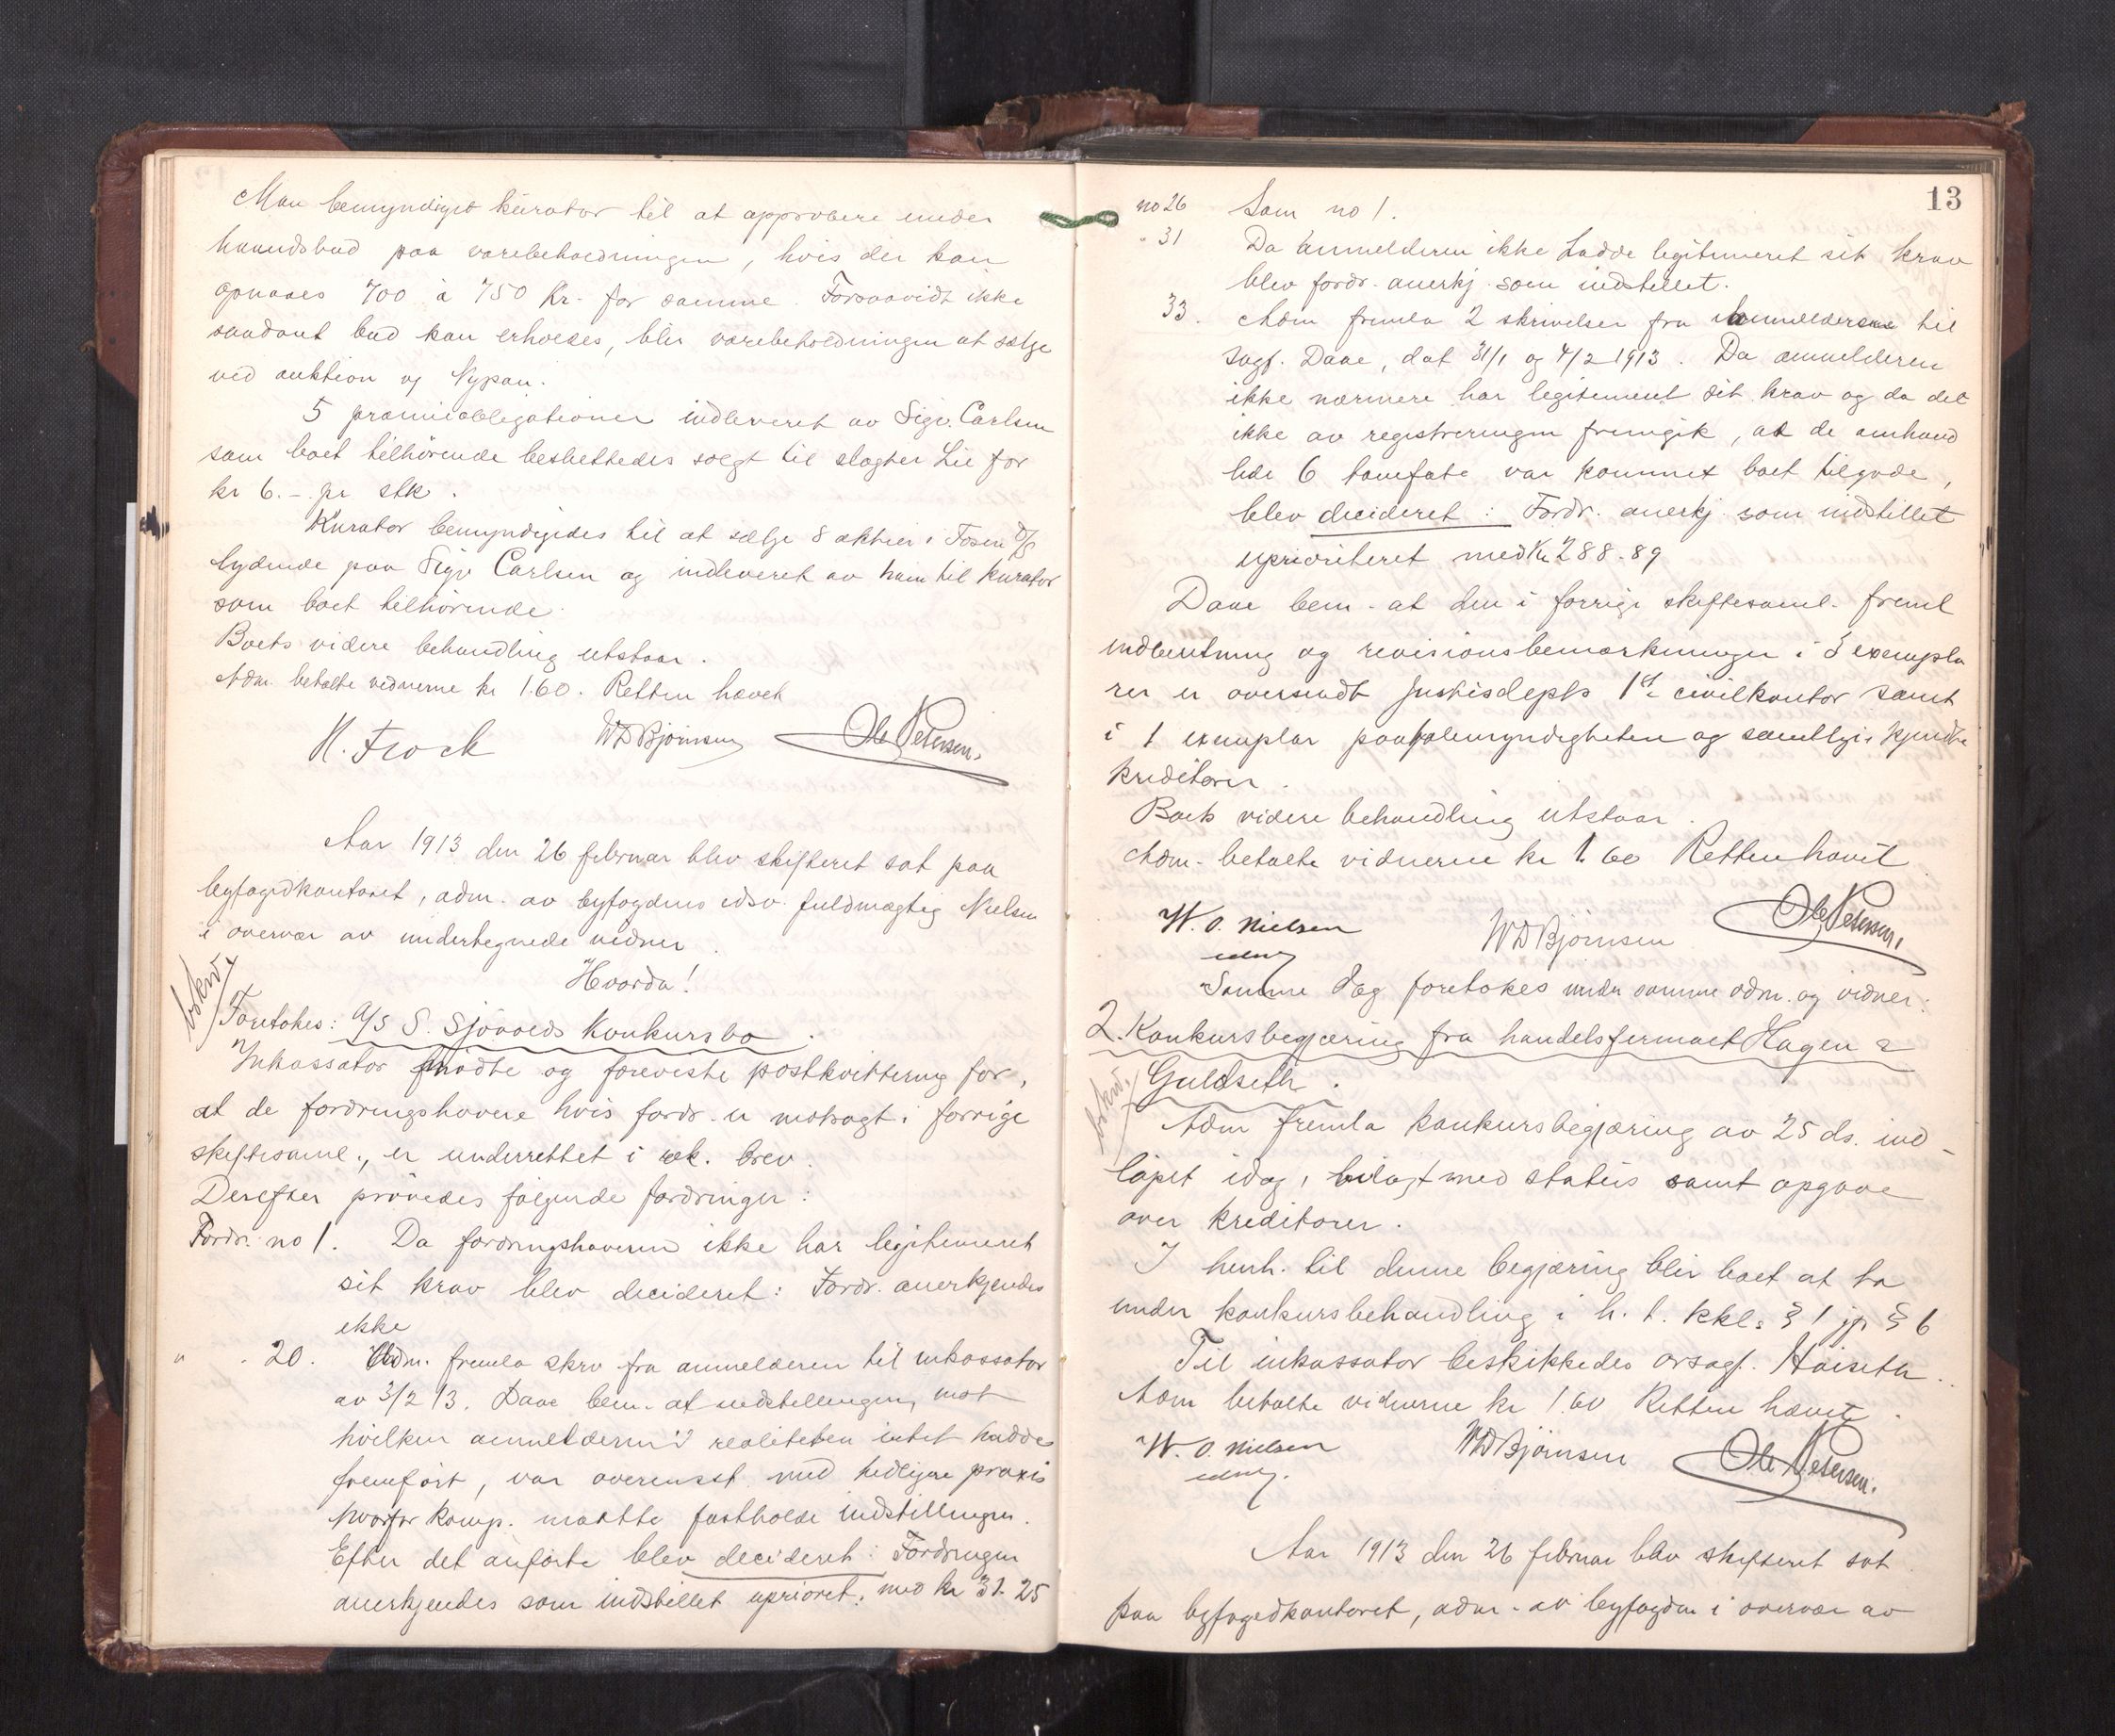 Man bemyndiget kurator til at approbere under
haandsbud paa varebeholdningen, hvis der kan
opnaaes 700 à 750 kr. for samme. Forsaavidt ikke
saadant bud kan erholdes, blir varebeholdningen at sælge
ved auktion
5 præmieobligationer indleveret av Sigv. Carlsen
som boet tilhörende besluttedes solgt til slagter Lie for
kr 6.- pr stk.
Kurator bemyndigedes til at sælge 8 aktier i Fosen D/S
lydende paa Sigv Carlsen og indleveret av ham til kurator
som boet tilhörende.
Boets videre behandling utstaar.
Adm. betalte vidnerne kr 1.60. Retten hævet
N. Frock WDBjörnsen Ole Petersen.
Aar 1913 den 26 februar blev skifteret sat paa
byfogedkontoret, adm. av byfogdens edsv. fuldmægtig Nielsen
i overvær av undertegnede vidner.
Hvorda!
bskrv.
Foretokes: A/S S. Sjövolds konkursbo.
Inkassator mödte og foreviste postkvittering for,
at de fordringshavere hvis fordr. er motsagt i forrige
skiftesaml., er underrettet i rek. brev.
Derefter prövedes fölgende fordringer:
Fordr. no 1. Da fordringshaveren ikke har legitimeret
sit krav blev decideret: Fordr. anerkjendes
ikke
" " 20. Adm. fremla skrv fra anmelderen til inkassator
av 3/2 13. Daae bem. at indstillingen, mot
hvilken anmelderen i realiteten intet hadde
fremfört, var overensst. med tidligere praxis
hvorfor komp. maatte fastholde indstillingen.
Efter det anförte blev decideret: Fordringen
anerkjendes som indstillet uprioret. med kr 31.25
13
no 26 Som no 1.
" 31 Da anmelderen ikke hadde legitimeret sit krav
blev fordr. anerkj. som indstillet.
33. Adm fremla 2 skrivelser fra anmelderen til
sagf. Daae, dat 31/1 og 4/2 1913. Da anmelderen
ikke nærmere har legitimeret sit krav og da det
ikke av registreringen fremgik, at de omhand
lede 6 var kommet boet tilgode,
blev decideret: Fordr. anerkj. som indstillet
uprioriteret med Kr 288.89
Daae bem. at den i forrige skiftesaml. freml
indberetning og revisionsbemærkninger i 3 exempla
rer er oversendt Justisdepts 1ste civilkontor samt
i 1 exemplar paatalemyndigheten og samtlige kjendte
kreditorer.
Boets videre behandling utstaar.
Adm. betalte vidnerne kr 1.60 Retten hævet
W. O. Nielsen WDBjörnsen Ole Petersen.
edsv.
Samme dag foretokes under samme adm. og vidner:
2. Konkursbegjæring fra handelsfirmaet Hagen &
Guldseth.
bskrv.
Adm fremla konkursbegjæring av 25 ds. ind-
löpet idag, bilagt med status samt opgave
over kreditorer.
I henh. til denne begjæring blir boet at ta
under konkursbehandling i h. t. kkl. § 1 jfr § 6
Til inkassator beskikkedes orsagf. Höiseth.
Adm betalte vidnerne kr 1.60 Retten hævet.
W. O. Nielsen WDBjörnsen Ole Petersen.
edsv.
Aar 1913 den 26 februar blev skifteret sat
paa byfogedkontoret, adm. av byfogden i overvær av